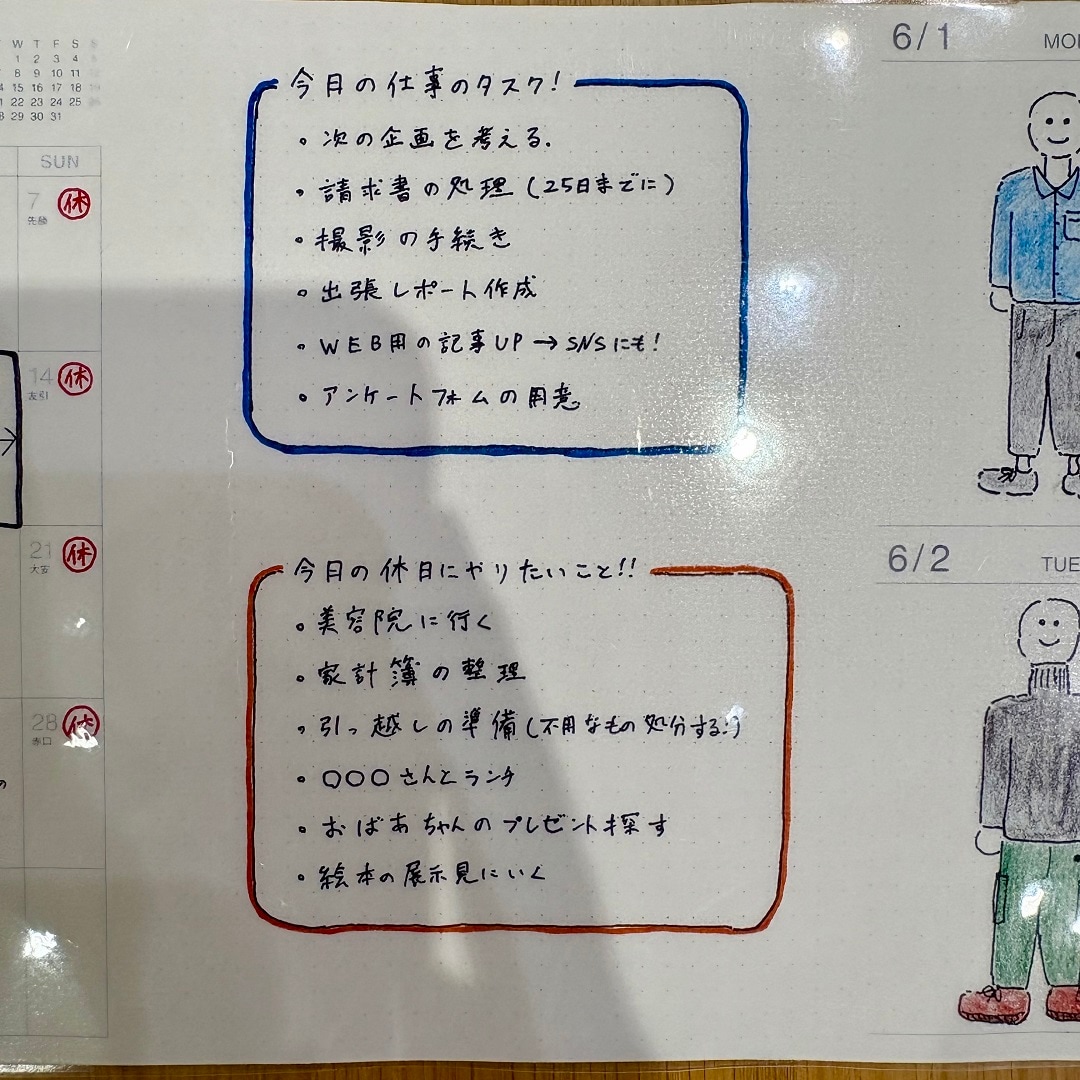 W T F S
1 2 3 4
8 9 10 11
15 16 17 18
22 23 24 25
29 30 31
SUN
7 休
先勝
14 休
友引
→
21 休
大安
28 休
赤口
の
今月の仕事のタスク!
・次の企画を考える.
・請求書の処理(25日までに)
・撮影の手続き
・出張レポート作成
・WEB用の記事UP→SNSにも!
・アンケートフォムの用意。
今月の休日にやりたいこと!!
・美容院に行く
・家計簿の整理
・引っ越しの準備(不用なもの処分する!)
・○○○さんとランチ
・おばあちゃんのプレゼント探す
・絵本の展示見にいく
6/1 MO
6/2 TUE